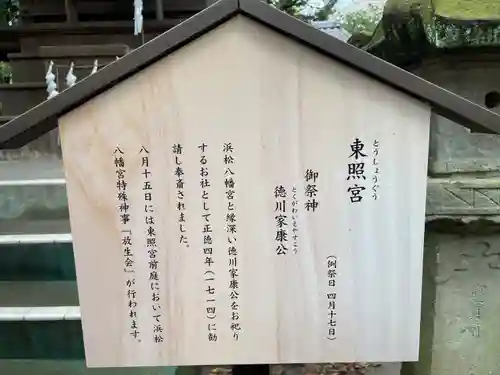 東照宮
とうしょうぐう
(例祭日 四月十七日)
御祭神
徳川家康公
とくがわいえやすこう
浜松八幡宮と縁深い徳川家康公をお祀り
するお社として正徳四年(一七一四)に勧
請し奉斎されました。
八月十五日には東照宮前庭において浜松
八幡宮特殊神事「放生会」が行われます。